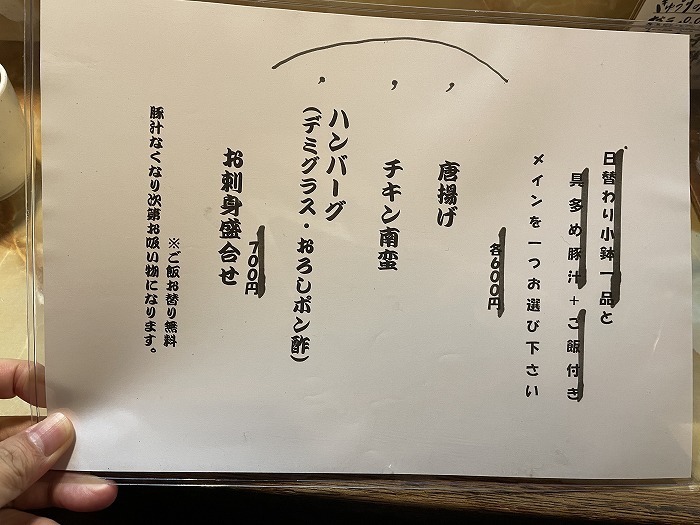 日替わり小鉢一品と
具多め豚汁+ご飯付き
メインを一つお選び下さい
各600円
唐揚げ
チキン南蛮
ハンバーグ
(デミグラス・おろしポン酢)
700円
お刺身盛合せ
※ご飯お替り無料
豚汁なくなり次第お吸い物になります。